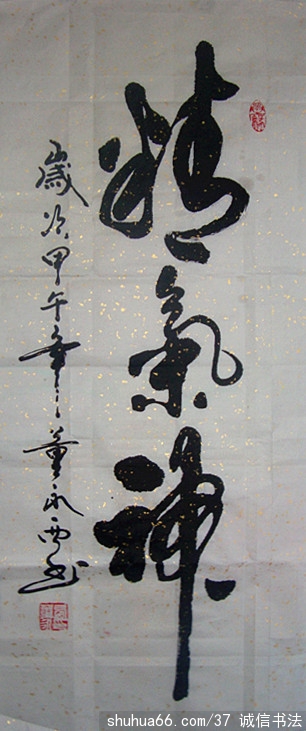 精氣神
歲次甲午年董永西书
shuhua66.com/37 诚信书法